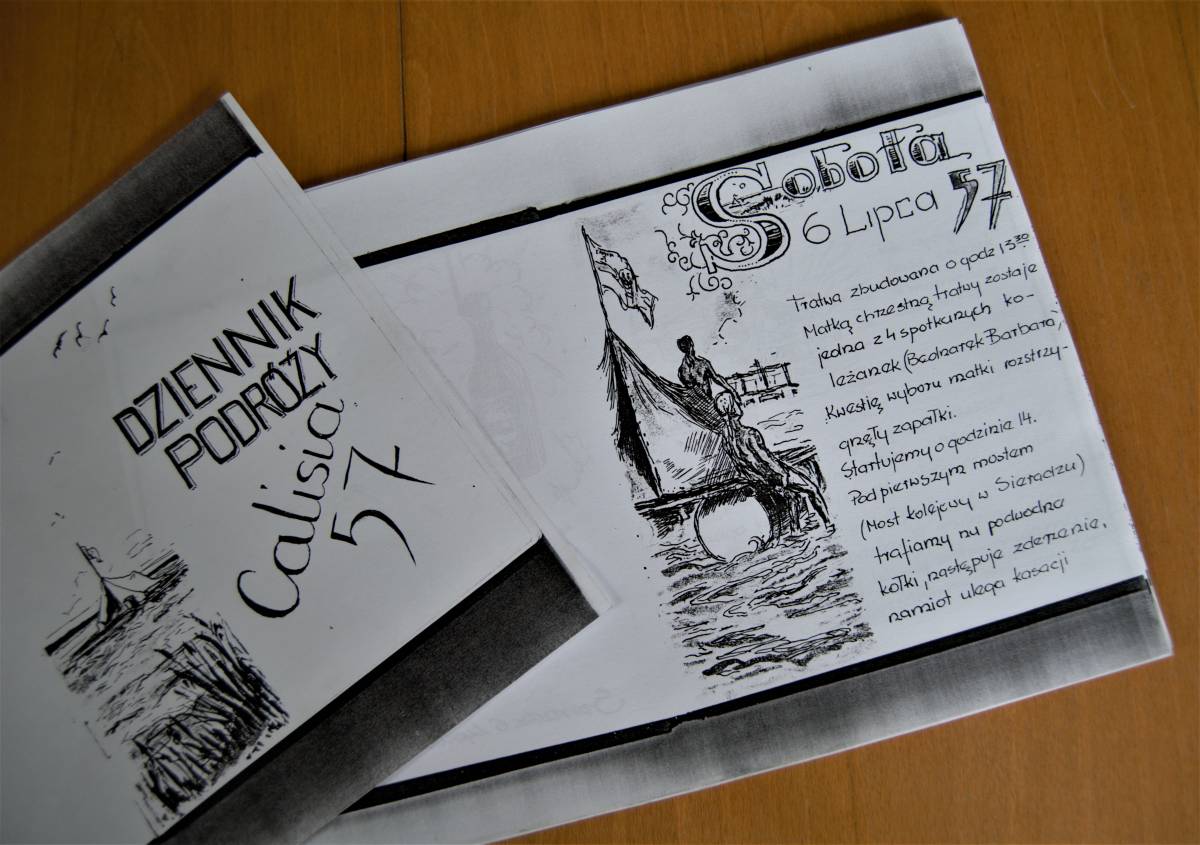 DZIENNIK
PODRÓŻY
Calisia
57
Sobota
6 Lipca 57
Tratwa zbudowana o godz 13³⁰
Matką chrzestną tratwy zostaje
jedna z 4 spotkanych ko-
leżanek (Bednarek Barbara)
Kwestię wyboru matki rozstrzy-
gnęły zapałki.
Startujemy o godzinie 14.
Pod pierwszym mostem
(Most kolejowy w Sieradzu)
trafiamy na podwodne
kołki, następuje zderzenie,
namiot ulega kasacji